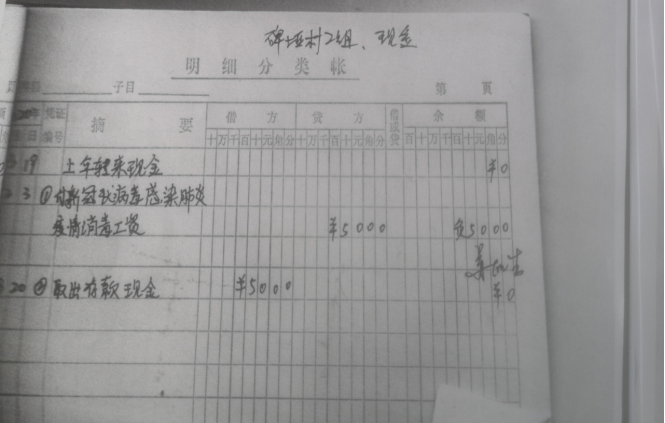 碑垭村2组、现金
明细分类帐
子目
第 頁
年 凭证 摘 要 借方 贷方 借或贷 余额
日 编号 十万千百十元角分 十万千百十元角分 十万千百十元角分
19 上年转来现金 ¥0
3 ① 付新冠状病毒感染肺炎
疫情消毒工资 ¥5000 负5000
20 ② 取出存款现金 ¥5000 ¥0